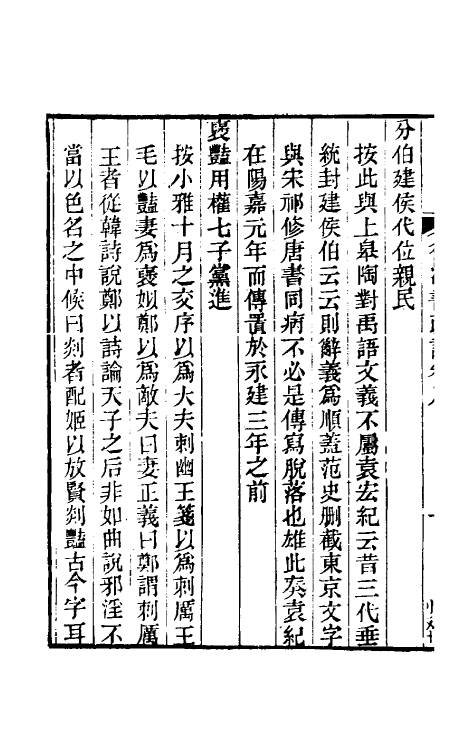 分伯建侯代位親民
按此與上皋陶對禹語文義不屬袁宏紀云昔三代垂
統封建侯伯云云則辭義爲順蓋范史刪截東京文字
與宋祁修唐書同病不必是傳寫脫落也雄此奏袁紀
在陽嘉元年而傳置於永建三年之前
襃豔用權七子黨進
按小雅十月之交序以爲大夫刺幽王箋以爲刺厲王
毛以豔妻爲襃姒鄭以爲敵夫曰妻正義曰鄭謂刺厲
王者從韓詩說鄭以詩論天子之后非如曲說邪淫不
當以色名之中候曰剡者配姬以放賢剡豔古今字耳